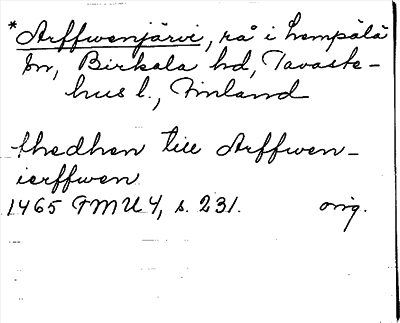 *Arffwenjärvi, rå i Lempälä
sn, Birkala hd, Tavaste-
hus l., Finland
thedhen till Arffwen-
ierffwen
1465 FMU 4, s. 231. orig.